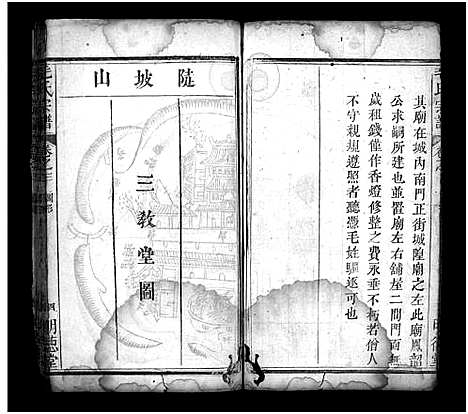 毛氏宗譜
其廟在城內南門正街城隍廟之左此廟鳳韶
公求嗣所建也並置廟左右舖屋二間門面無
歲租錢僅作香燈修整之費永垂不朽若僧人
不守規遵照者聽憑毛姓驅逐可也
陡坡山
三教堂圖
毛氏宗譜
卷之
圖形
四
明德堂